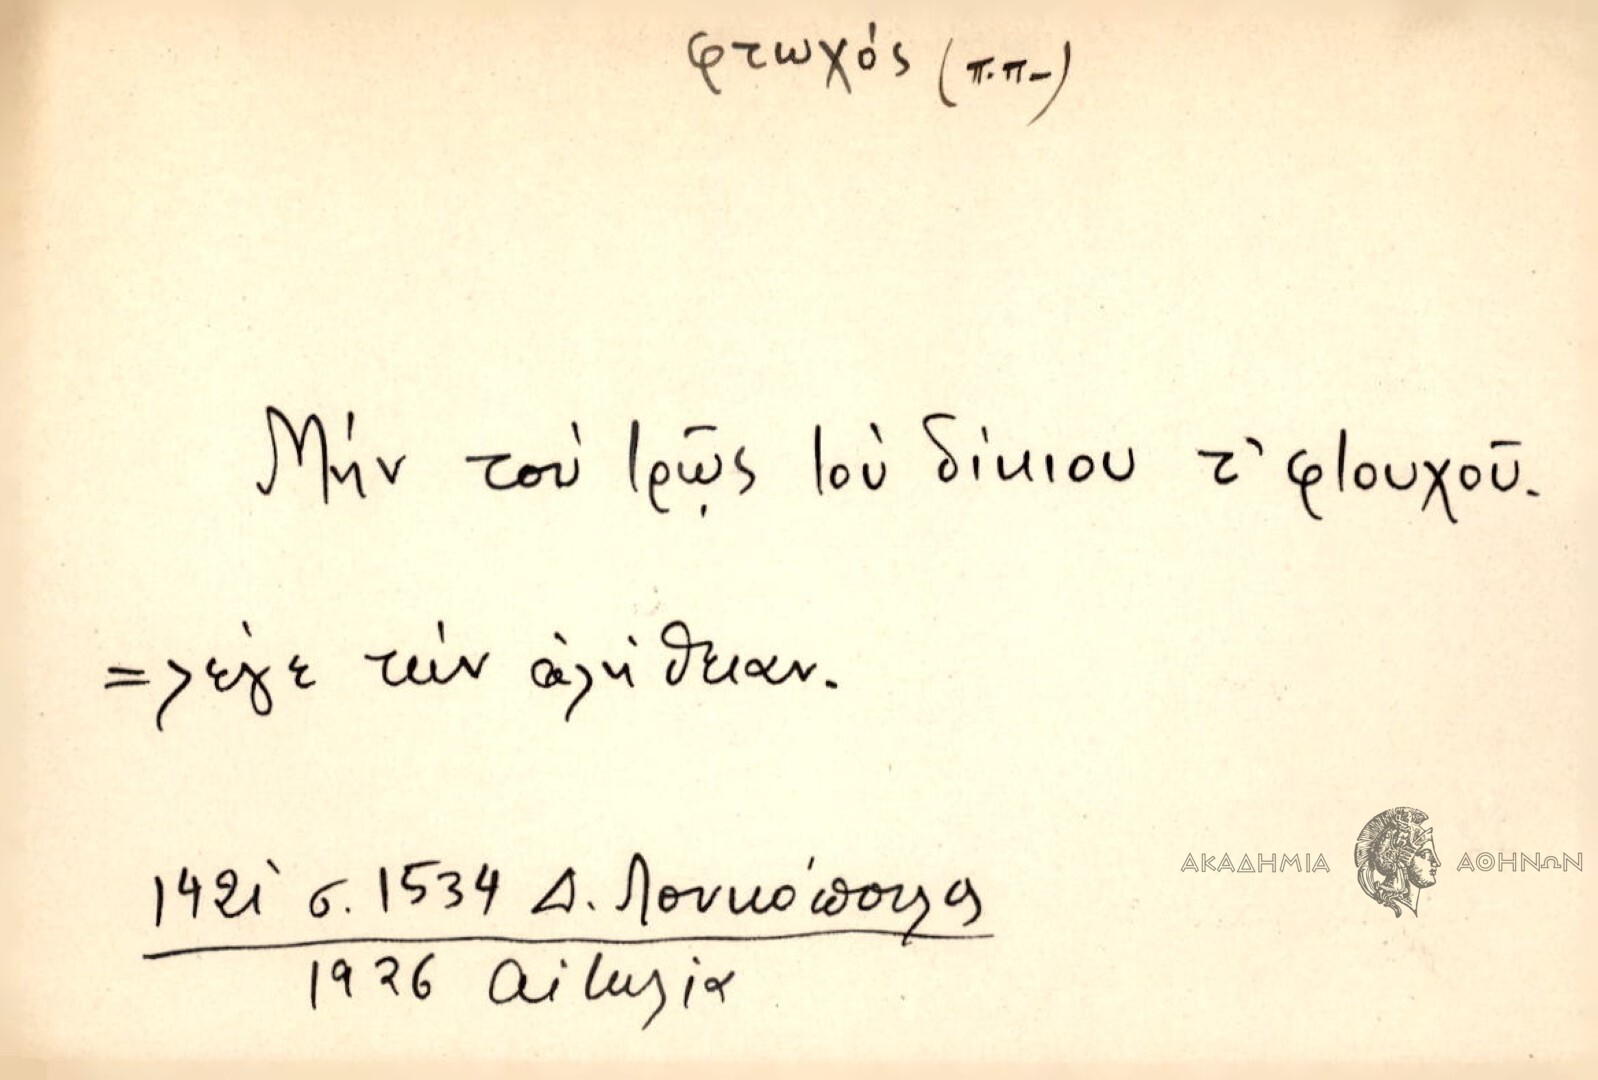 φτωχός (π.π-)
Μήν τοὺ τρῷς τοὺ δίκιου τ' φτουχοῦ.
= λέγε τὴν ἀλήθειαν.
1421 σ. 1534 Δ. Λουκόπουλος
1926 Αἰτωλία
ΑΚΑΔΗΜΙΑ ΑΘΗΝΩΝ